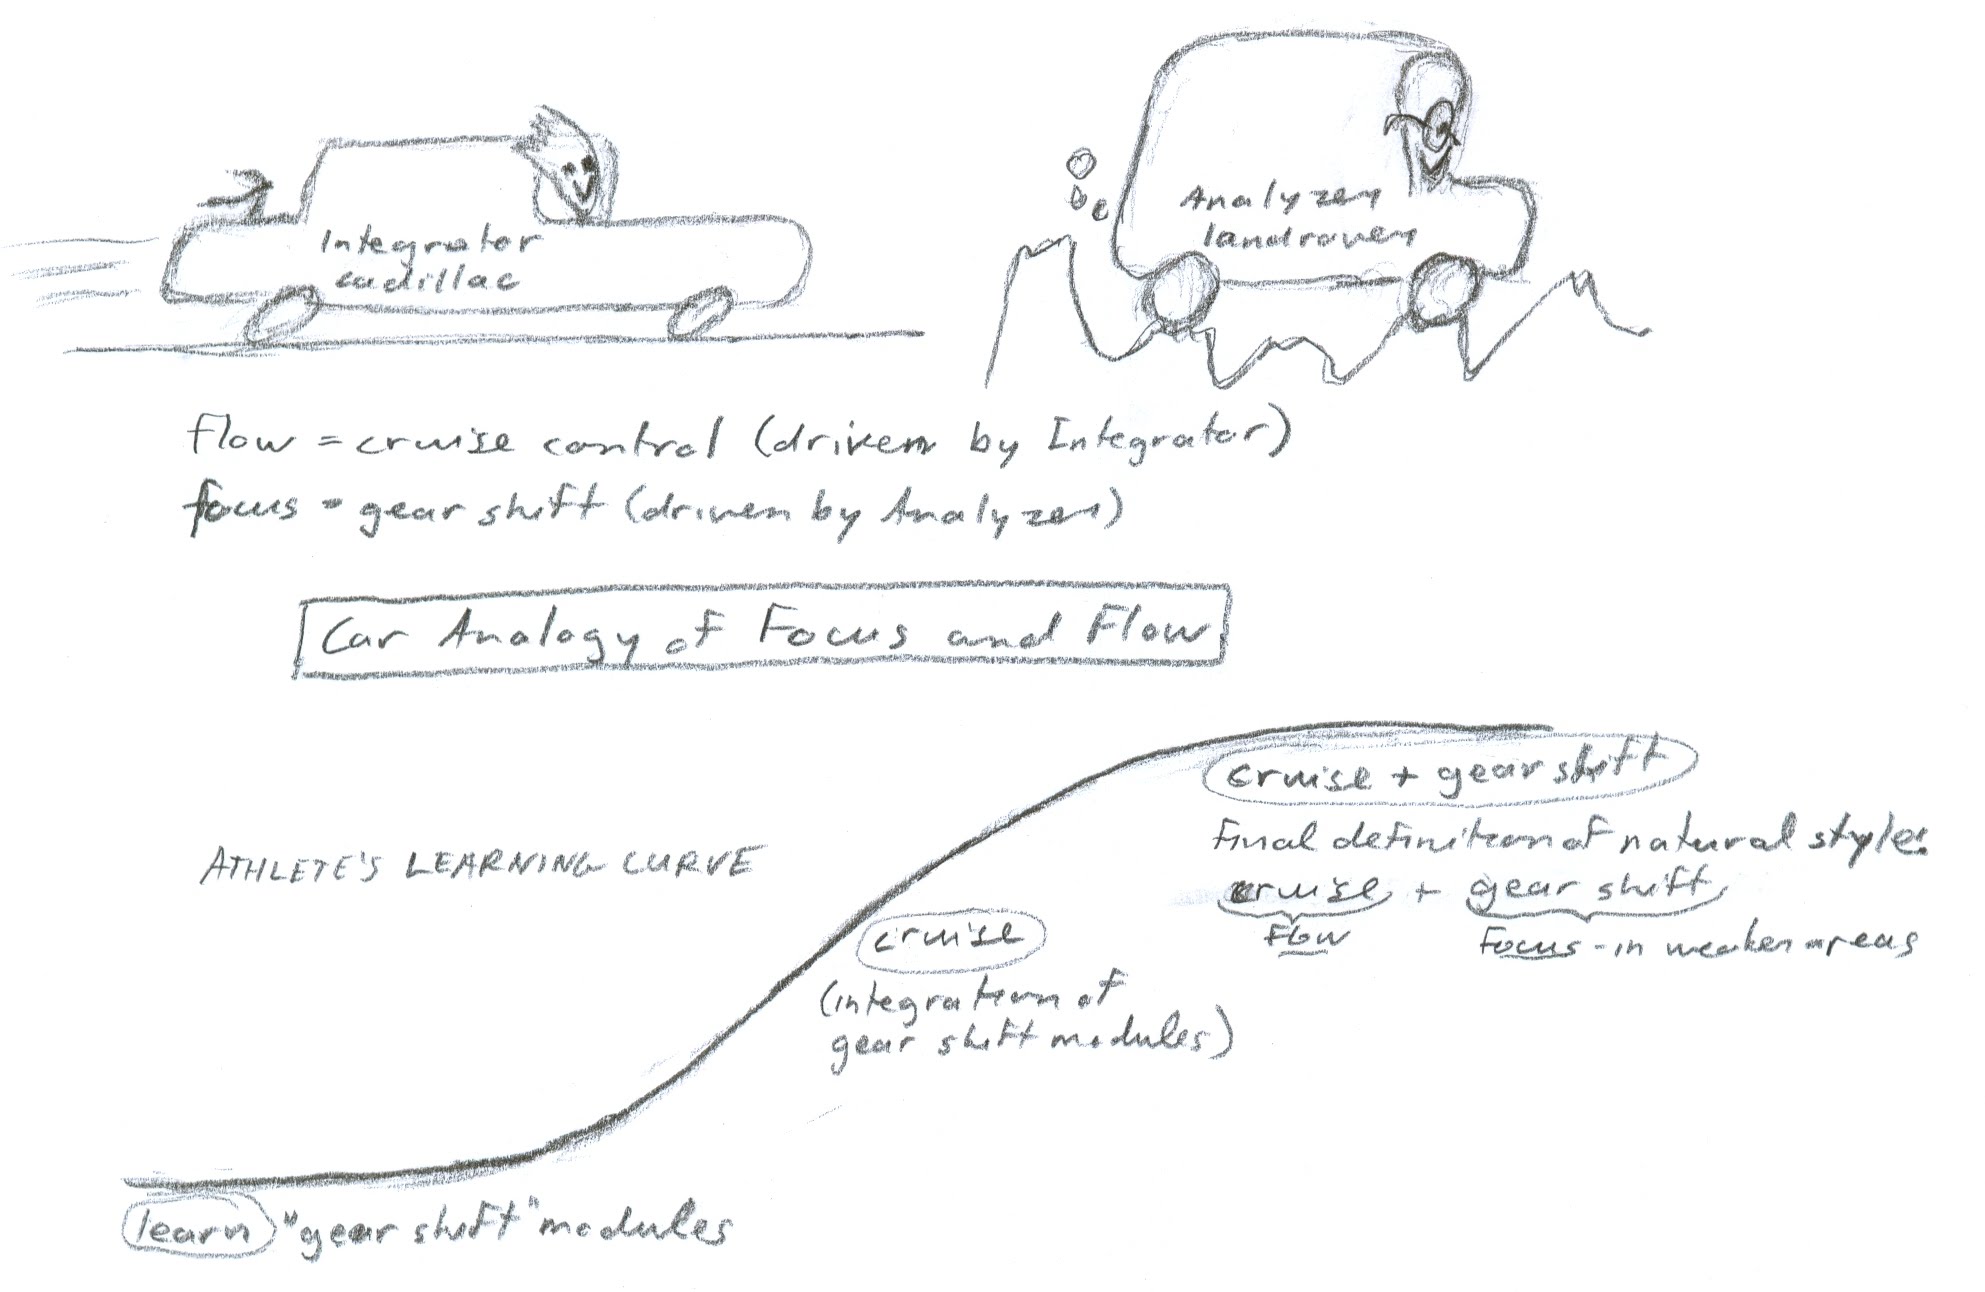 Integrator
cadillac
Analyzer
landrover
flow = cruise control (driven by Integrator)
focus = gear shift (driven by Analyzer)
Car Analogy of Focus and Flow
ATHLETE'S LEARNING CURVE
cruise + gear shift
final definition of natural style:
cruise + gear shift
Flow
Focus - in weaker areas
cruise
(integration of
gear shift modules)
learn "gear shift" modules